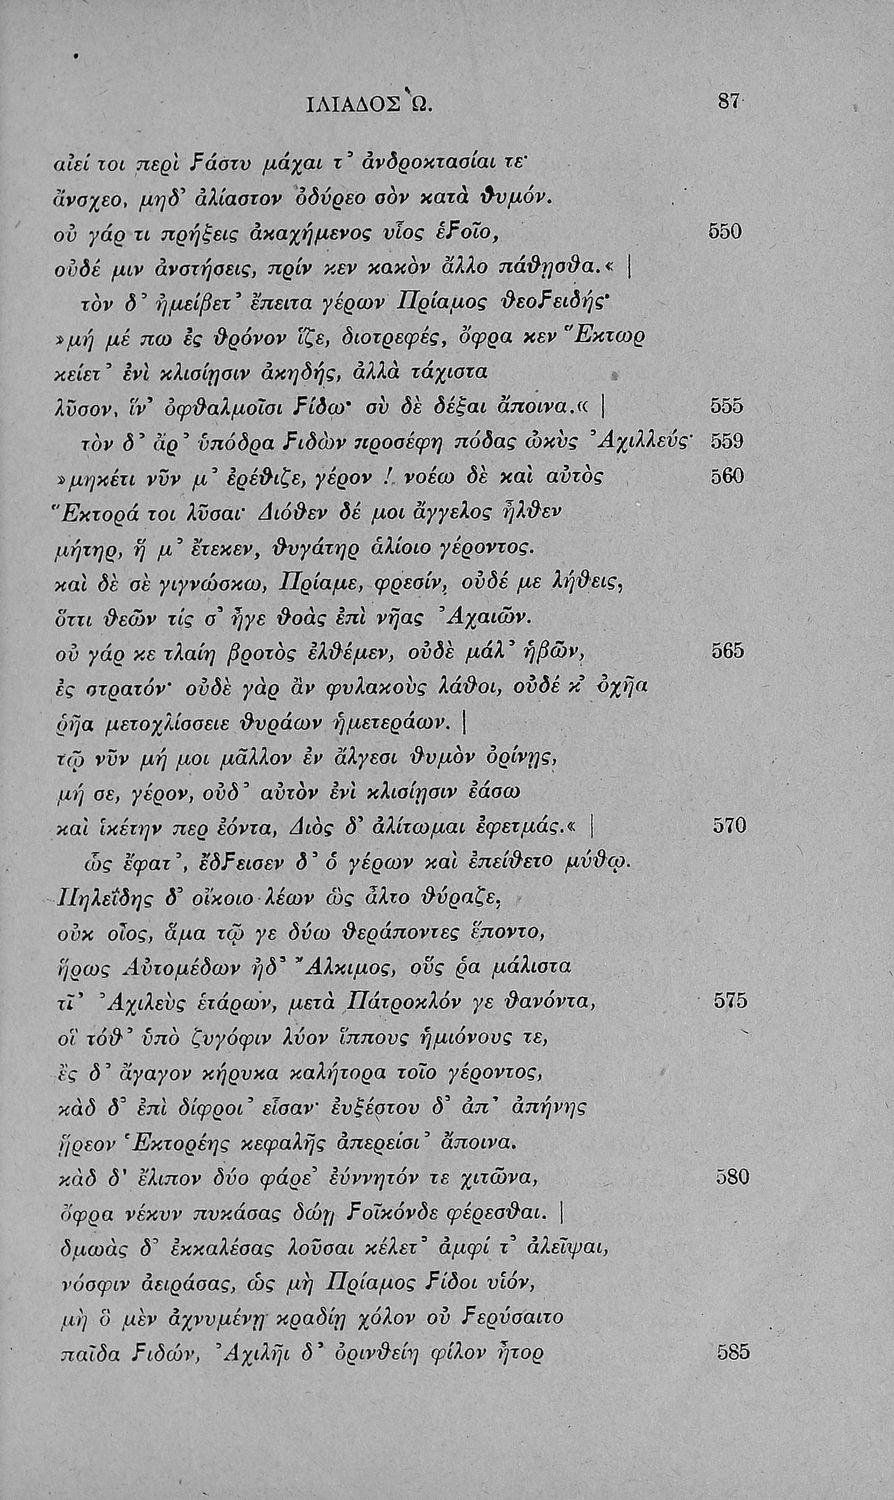 ΙΛΙΑΔΟΣ Ὼ. 87
αἰεί τοι περὶ ϝάστυ μάχαι τ᾽ ἀνδροκτασίαι τε·
ἄνσχεο, μηδ᾽ ἀλίαστον ὀδύρεο σὸν κατὰ θυμόν.
οὐ γάρ τι πρήξεις ἀκαχήμενος υἷος ἑϝοῖο, 550
οὐδέ μιν ἀνστήσεις, πρίν κεν κακὸν ἄλλο πάθησθα.« |
τὸν δ᾽ ἠμείβετ᾽ ἔπειτα γέρων Πρίαμος θεοϝειδής·
»μή μέ πω ἐς θρόνον ἵζε, διοτρεφές, ὄφρα κεν Ἕκτωρ
κεῖετ᾽ ἐνὶ κλισίῃσιν ἀκηδής, ἀλλὰ τάχιστα
λῦσον, ἵν᾽ ὀφθαλμοῖσι ϝίδω· σὺ δὲ δέξαι ἄποινα.« | 555
τὸν δ᾽ ἄρ᾽ ὑπόδρα ϝιδὼν προσέφη πόδας ὠκὺς Ἀχιλλεύς· 559
»μηκέτι νῦν μ᾽ ἐρέθιζε, γέρον! νοέω δὲ καὶ αὐτὸς 560
Ἕκτορά τοι λῦσαι· Διόθεν δέ μοι ἄγγελος ἦλθεν
μήτηρ, ἥ μ᾽ ἔτεκεν, θυγάτηρ ἁλίοιο γέροντος.
καὶ δὲ σὲ γιγνώσκω, Πρίαμε, φρεσίν, οὐδέ με λήθεις,
ὅττι θεῶν τίς σ᾽ ἦγε θοὰς ἐπὶ νῆας Ἀχαιῶν.
οὐ γάρ κε τλαίη βροτὸς ἐλθέμεν, οὐδὲ μάλ᾽ ἡβῶν, 565
ἐς στρατόν· οὐδὲ γὰρ ἂν φυλακοὺς λάθοι, οὐδέ κ᾽ ὀχῆα
ῥῆα μετοχλίσσειε θυράων ἡμετεράων. |
τῷ νῦν μή μοι μᾶλλον ἐν ἄλγεσι θυμὸν ὀρίνῃς,
μή σε, γέρον, οὐδ᾽ αὐτὸν ἐνὶ κλισίῃσιν ἐάσω
καὶ ἱκέτην περ ἐόντα, Διὸς δ᾽ ἀλίτωμαι ἐφετμάς.« | 570
ὣς ἔφατ᾽, ἔδϝεισεν δ᾽ ὁ γέρων καὶ ἐπείθετο μύθῳ.
Πηλεΐδης δ᾽ οἴκοιο λέων ὣς ἆλτο θύραζε,
οὐκ οἶος, ἅμα τῷ γε δύω θεράποντες ἕποντο,
ἥρως Αὐτομέδων ἠδ᾽ Ἄλκιμος, οὕς ῥα μάλιστα
τῖ᾽ Ἀχιλεὺς ἑτάρων, μετὰ Πάτροκλόν γε θανόντα, 575
οἳ τόθ᾽ ὑπὸ ζυγόφιν λύον ἵππους ἡμιόνους τε,
ἐς δ᾽ ἄγαγον κήρυκα καλήτορα τοῖο γέροντος,
κὰδ δ᾽ ἐπὶ δίφροι᾽ εἷσαν· ἐυξέστου δ᾽ ἀπ᾽ ἀπήνης
ᾕρεον Ἑκτορέης κεφαλῆς ἀπερείσι᾽ ἄποινα.
κὰδ δ᾽ ἔλιπον δύο φάρε᾽ ἐύννητόν τε χιτῶνα, 580
ὄφρα νέκυν πυκάσας δώῃ ϝοῖκόνδε φέρεσθαι. |
δμωὰς δ᾽ ἐκκαλέσας λοῦσαι κέλετ᾽ ἀμφί τ᾽ ἀλεῖψαι,
νόσφιν ἀειράσας, ὡς μὴ Πρίαμος ϝίδοι υἱόν,
μὴ ὃ μὲν ἀχνυμένῃ κραδίῃ χόλον οὐ ϝερύσαιτο
παῖδα ϝιδών, Ἀχιλῆι δ᾽ ὀρινθείη φίλον ἦτορ 585